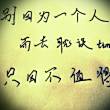 别因为一个人
而去耽误
只因不值